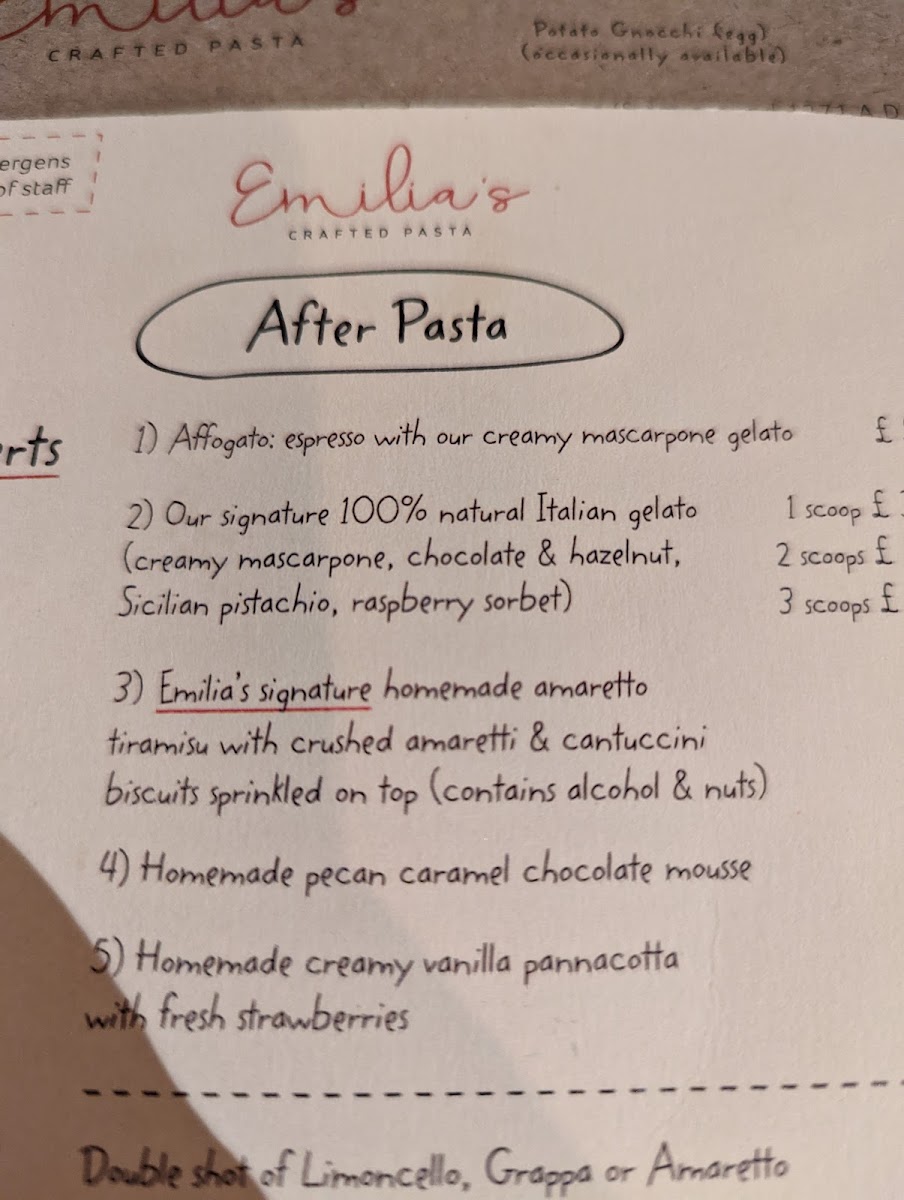 CRAFTED PASTA
Potato Gnocchi (egg)
(occasionally available)
ergens
of staff
Emilia's
CRAFTED PASTA
After Pasta
erts
1) Affogato: espresso with our creamy mascarpone gelato £
2) Our signature 100% natural Italian gelato 1 scoop £
(creamy mascarpone, chocolate & hazelnut, 2 scoops £
Sicilian pistachio, raspberry sorbet) 3 scoops £
3) Emilia's signature homemade amaretto
tiramisu with crushed amaretti & cantuccini
biscuits sprinkled on top (contains alcohol & nuts)
4) Homemade pecan caramel chocolate mousse
5) Homemade creamy vanilla pannacotta
with fresh strawberries
Double shot of Limoncello, Grappa or Amaretto